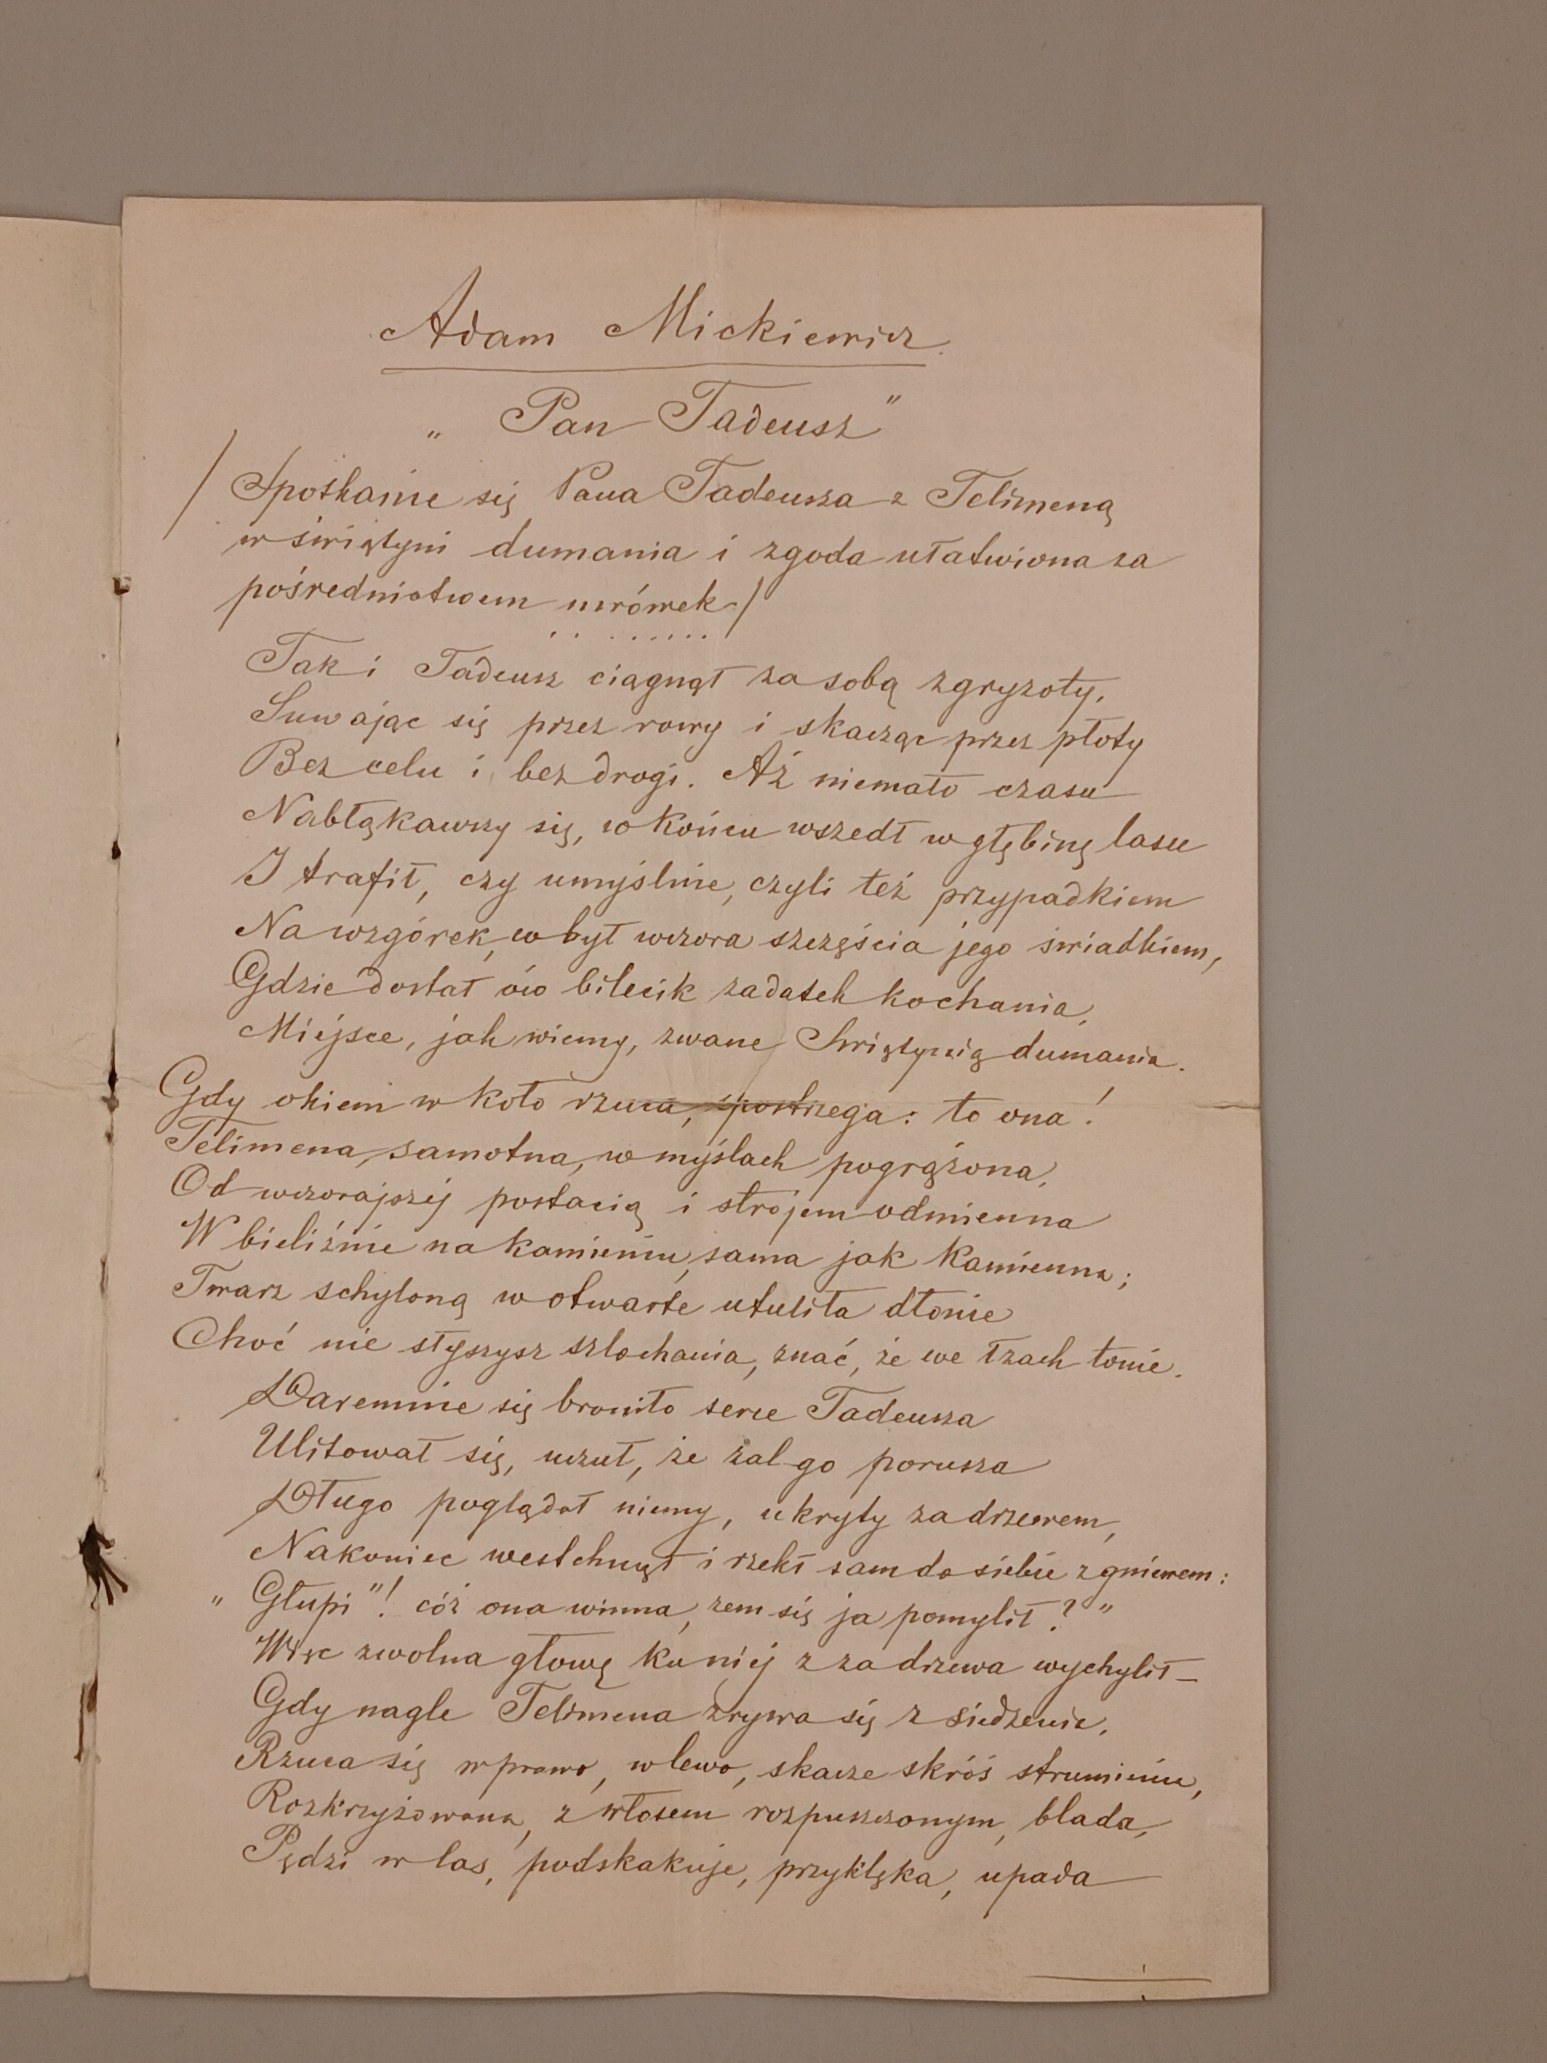 Adam Mickiewicz.
„Pan Tadeusz"
/Spotkanie się Pana Tadeusza z Telimeną
w świątyni dumania i zgoda ułatwiona za
pośrednictwem mrówek./
.. ......
Tak i Tadeusz ciągnął za sobą zgryzoty,
Suwając się przez rowy i skacząc przez płoty
Bez celu i bez drogi. Aż niemało czasu
Nabłąkawszy się, w końcu wszedł w głębinę lasu
I trafił, czy umyślnie, czyli też przypadkiem
Na wzgórek, co był wczora szczęścia jego świadkiem,
Gdzie dostał ów bilecik zadatek kochania,
Miejsce, jak wiemy, zwane Świątynią dumania.
Gdy okiem w koło rzuca, spostrzega: to ona!
Telimena, samotna, w myślach pogrążona,
Od wczorajszéj postacią i strojem odmienna
W bieliźnie na kamieniu, sama jak kamienna;
Twarz schyloną w otwarte utuliła dłonie
Choć nie słyszysz szlochania, znać, że we łzach tonie.
Daremnie się broniło serce Tadeusza
Ulitował się, uczuł, że żal go porusza
Długo poglądał niemy, ukryty za drzewem,
Nakoniec westchnął i rzekł sam do siebie z gniewem:
„Głupi"! cóż ona winna, żem się ja pomylił?"
Więc zwolna głowę ku niéj z za drzewa wychylił –
Gdy nagle Telimena zrywa się z siedzenia,
Rzuca się w prawo, w lewo, skacze skróś strumienia,
Rozkrzyżowana, z włosem rozpuszczonym, blada,
Pędzi w las, podskakuje, przyklęka, upada